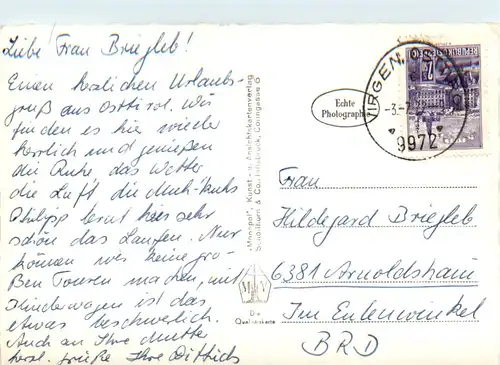 Liebe Frau Briegleb!
Einen herzlichen Urlaubs-
gruß aus Osttirol. Wir
finden es hier wieder
herrlich und genießen
die Ruhe, das Wetter
die Luft, die Milch-Kuh
Philipp lernt hier sehr
schön das Laufen. Nur
können wir keine gro-
ßen Touren machen, mit
Kinderwagen ist das
etwas beschwerlich.
Auch an Ihre Mutter
herzl. Grüße Ihre Dittrich
"Monopol", Kunst- u. Ansichtskartenverlag
Schöllhorn & Co., Innsbruck, Colingasse
Die
Qualitätskarte
Echte
Photographie
VIRGEN, OSTTIROL
9972
REPUBLIK
Frau
Hildegard Briegleb
6381 Arnoldshain
Im Eulenwinkel
BRD